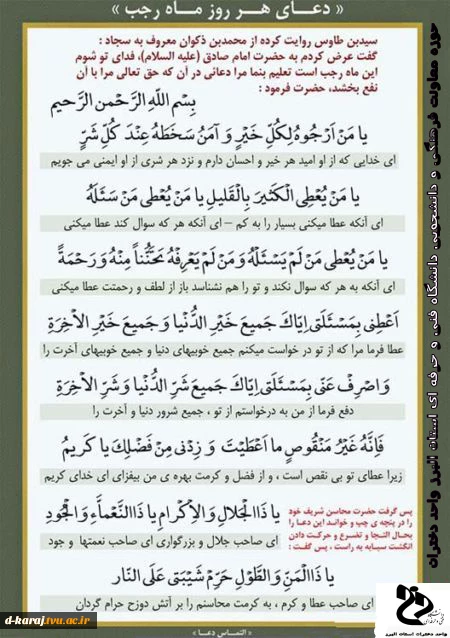 « دعـای هـر روز مـاه رجب »
سیدبن طاوس روایت کرده از محمدبن ذکوان معروف به سجاد :
گفت عرض کردم به حضرت امام صادق (علیه السلام)، فدای تو شوم
این ماه رجب است تعلیم بنما مرا دعائی در آن که حق تعالی مرا با آن
نفع بخشد، حضرت فرمود :
بِسْمِ اللَّهِ الرَّحْمنِ الرَّحيمِ
يا مَنْ اَرْجُوهُ لِكُلِّ خَيْرٍ وَ آمَنُ سَخَطَهُ عِنْدَ كُلِّ شَرٍّ
ای خدایی که از او امید هر خیر و احسان دارم و نزد هر شری از او ایمنی می جویم
يا مَنْ يُعْطِى الْكَثيرَ بِالْقَليلِ يا مَنْ يُعْطى مَنْ سَئَلَهُ
ای آنکه عطا میکنی بسیار را به کم – ای آنکه هر که سوال کند عطا میکنی
يا مَنْ يُعْطى مَنْ لَمْ يَسْئَلْهُ وَ مَنْ لَمْ يَعْرِفْهُ تَحَنُّناً مِنْهُ وَ رَحْمَةً
ای آنکه به هر که سوال نکند و تو را هم نشناسد باز از لطف و رحمتت عطا میکنی
اَعْطِنى بِمَسْئَلَتى اِيّاكَ جَميعَ خَيْرِ الدُّنْيا وَ جَميعَ خَيْرِ الْآخِرَةِ
عطا فرما مرا که از تو در خواست میکنم جمیع خوبیهای دنیا و جمیع خوبیهای آخرت را
وَ اصْرِفْ عَنّى بِمَسْئَلَتى اِيّاكَ جَميعَ شَرِّ الدُّنْيا وَ شَرِّ الْآخِرَةِ
دفع فرما از من به درخواستم از تو ، جمیع شرور دنیا و آخرت را
فَاِنَّهُ غَيْرُ مَنْقُوصٍ ما اَعْطَيْتَ وَ زِدْنى مِنْ فَضْلِكَ يا كَريمُ
زیرا عطای تو بی نقص است ، و از فضل و کرمت بهره ی من بیفزای ای خدای کریم
پس گرفت حضرت محاسن شریف خود
را در پنجه ی چپ و خواند این دعا را
بحال التجا و تضرع و حرکت دادن
انگشت سبابه به راست ، پس گفت :
يا ذَا الْجَلالِ وَ الْاِكْرامِ يا ذَا النَّعْماءِ وَ الْجُودِ
ای صاحب جلال و بزرگواری ای صاحب نعمتها و جود
يا ذَا الْمَنِّ وَ الطَّوْلِ حَرِّمْ شَيْبَتى عَلَى النّار
ای صاحب عطا و کرم ، به کرمت محاسنم را بر آتش دوزخ حرام گردان
« التماس دعا »
حوزه معاونت فرهنگی و دانشجویی دانشگاه فنی و حرفه ای استان البرز واحد دختران
d-karaj.tvu.ac.ir
واحد دختران استان البرز